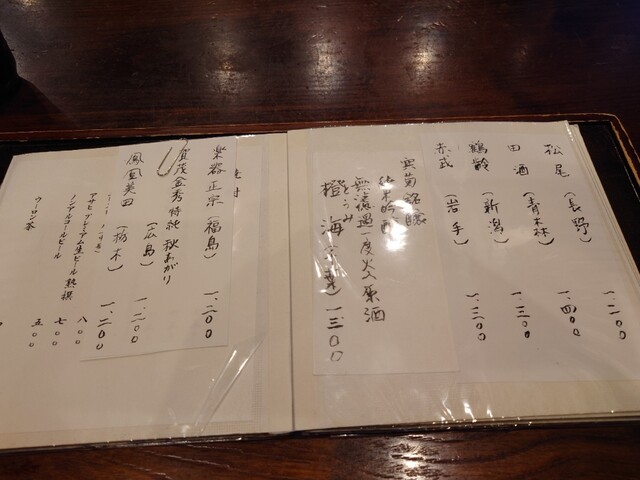 松尾（長野） 一、二〇〇
田酒（青森） 一、四〇〇
鶴齢（新潟） 一、三〇〇
赤武（岩手） 一、三〇〇
無濾過一度火入原酒
とうみ
橙海 一、三〇〇
楽器正宗（福島） 一、二〇〇
賀茂金秀 特純 秋あがり
（広島） 一、二〇〇
鳳凰美田（栃木） 一、二〇〇
アサヒプレミアム生ビール熟撰 八〇〇
ノンアルコールビール 七〇〇
ウーロン茶 五〇〇